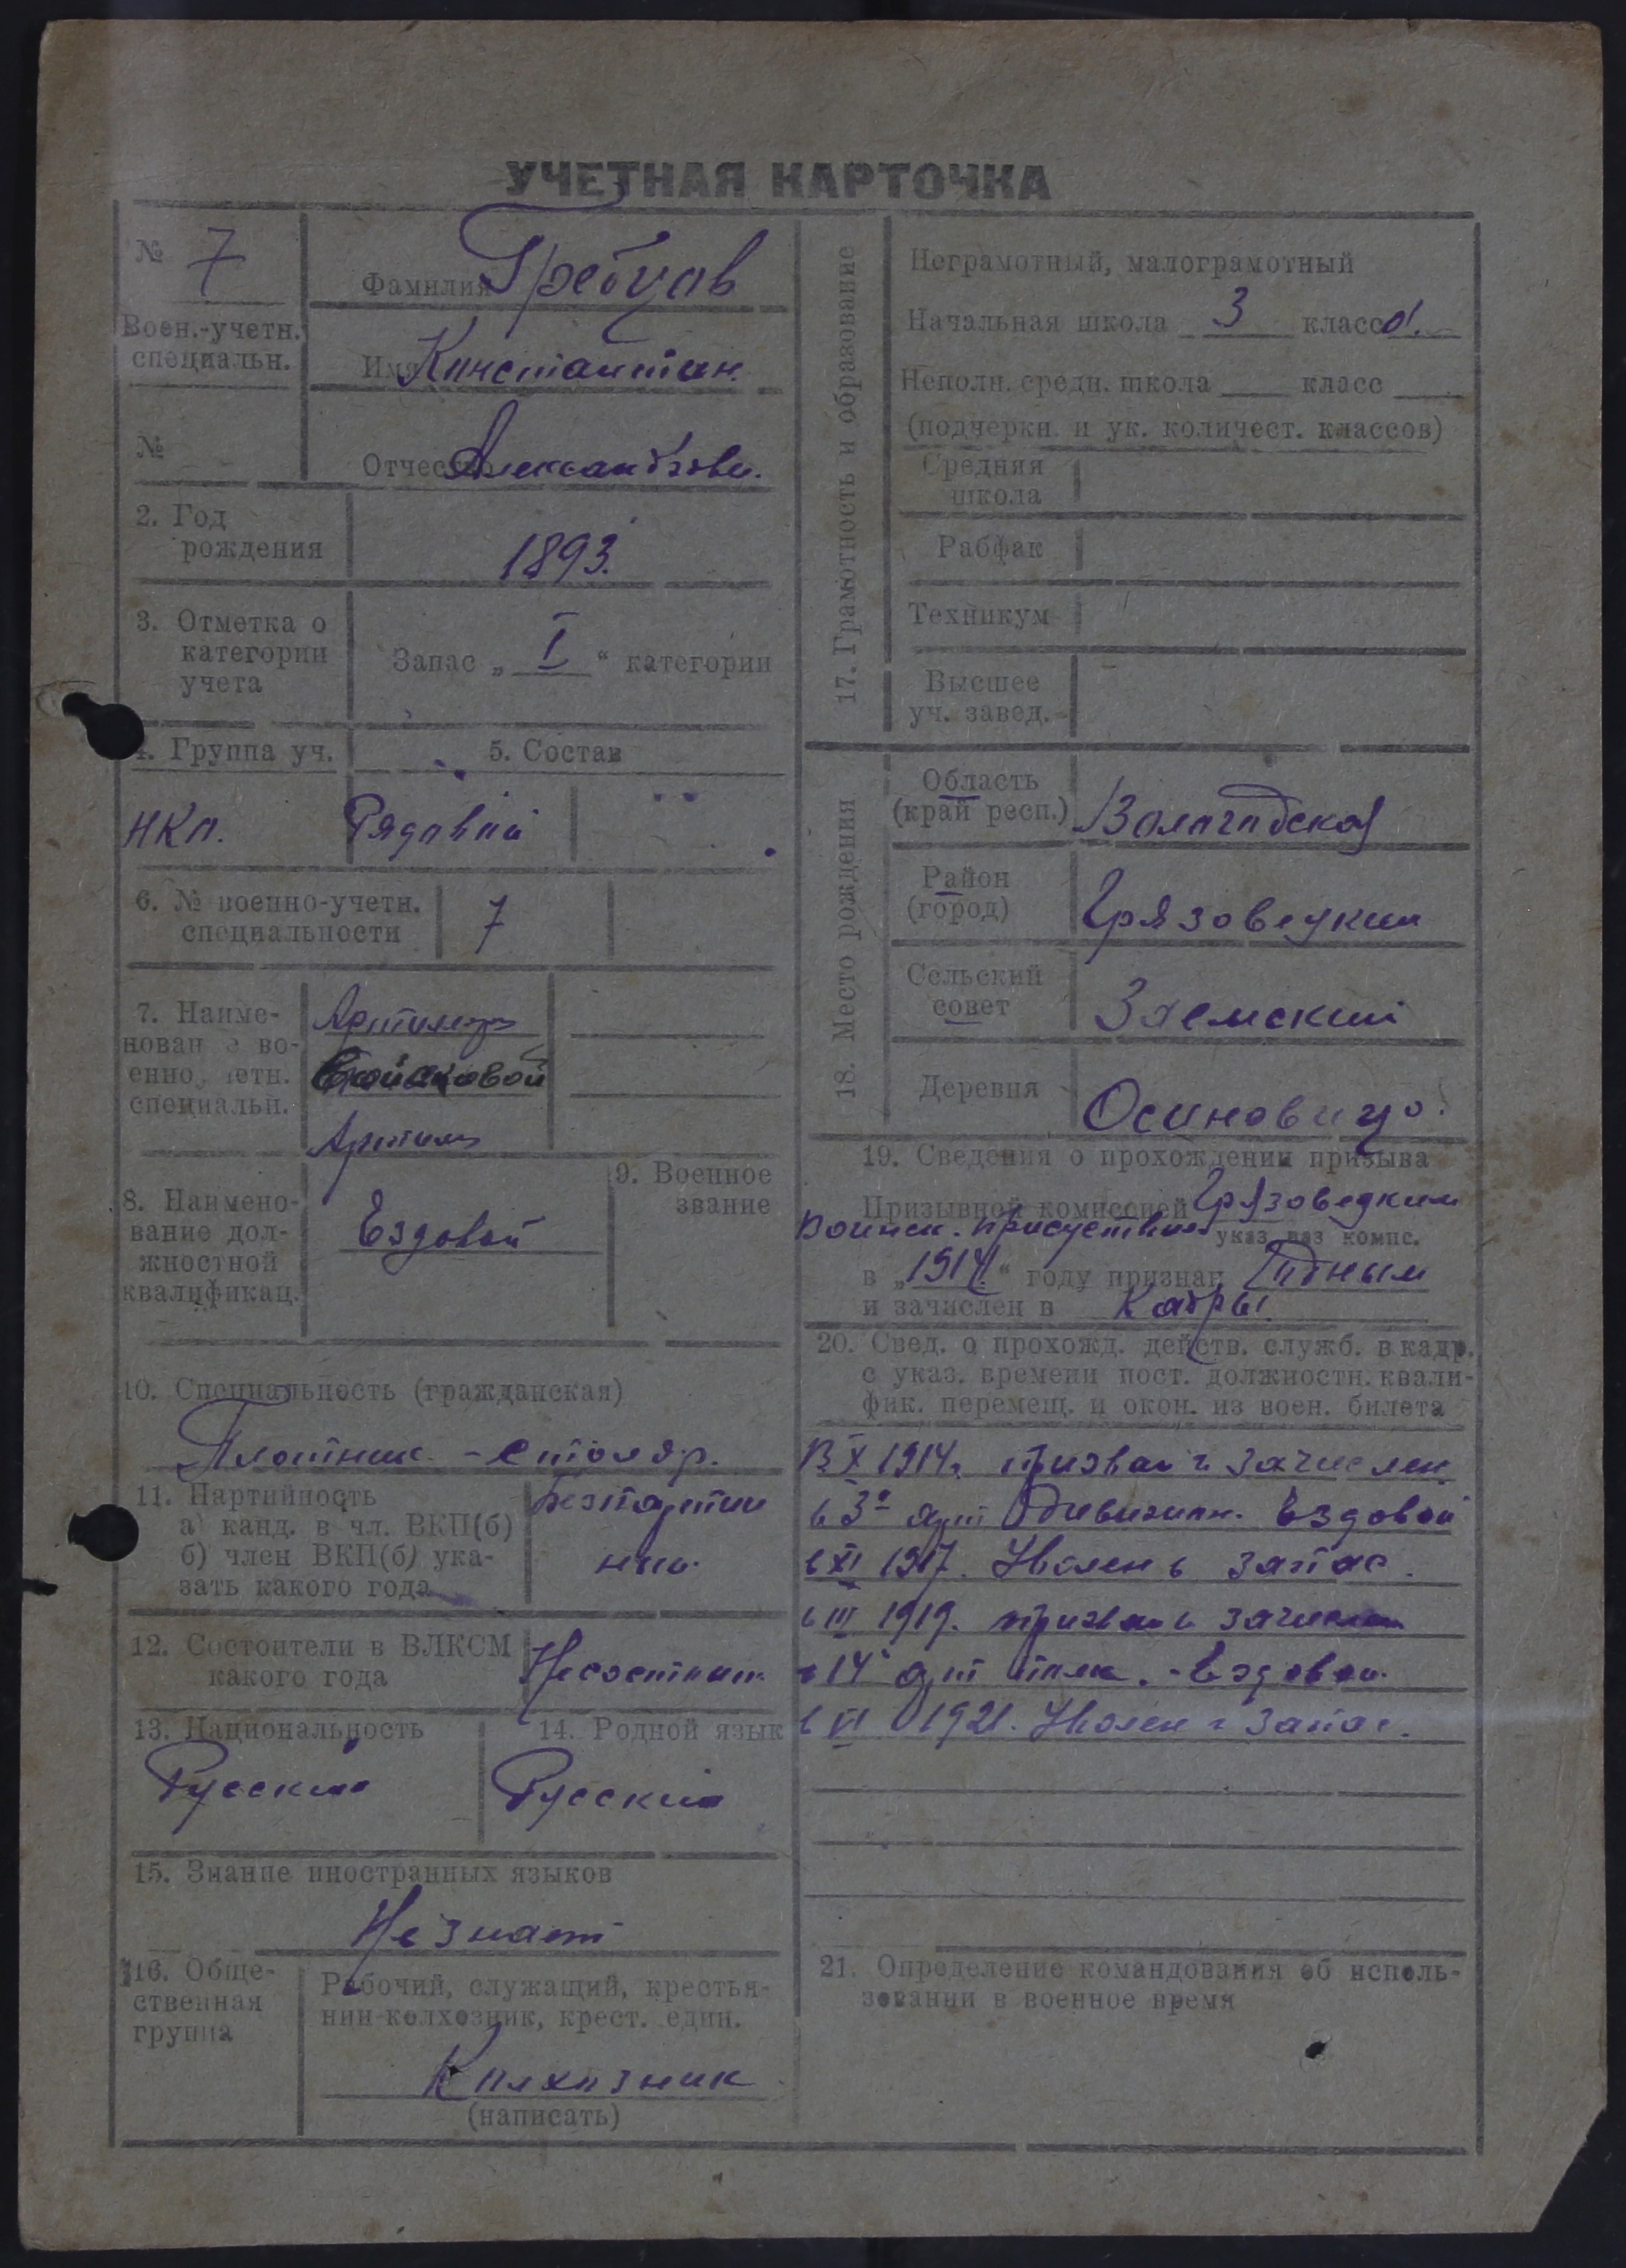 УЧЕТНАЯ КАРТОЧКА
№ 7
Воен.-учетн.
специальн.
№
Фамилия Гребцов
Имя Константин.
Отчество Александрови.
2. Год
рождения
1893.
3. Отметка о
категории
учета
Запас „ I “ категории
4. Группа уч.
5. Состав
НКО.
Рядовой
6. № военно-учетн.
специальности
7
7. Наиме-
нование во-
енно учетн.
специальн.
Артиллер
Войсковой
Артил
8. Наимено-
вание дол-
жностной
квалификац.
Ездовой
9. Военное
звание
10. Специальность (гражданская)
Плотник - столяр.
11. Партийность
а) канд. в чл. ВКП(б)
б) член ВКП(б) ука-
зать какого года
Безпартий
ный.
12. Состоит ли в ВЛКСМ
какого года
Несостоит.
13. Национальность
Русский
14. Родной язык
Русский
15. Знание иностранных языков
Не знает
16. Обще-
ственная
группа
Рабочий, служащий, крестья-
нин-колхозник, крест. един.
Колхозник
(написать)
17. Грамотность и образование
Неграмотный, малограмотный
Начальная школа 3 класса.
Неполн. средн. школа класс
(подчеркн. и ук. количест. классов)
Средняя
школа
Рабфак
Техникум
Высшее
уч. завед.
18. Место рождения
Область
(край респ.)
Вологодская
Район
(город)
Грязовецкий
Сельский
совет
Заемский
Деревня
Осиновицо.
19. Сведения о прохождении призыва
Призывной комиссией Грязовецким
Воинск. присуствием
указ. наз комис.
в „1914.“ году признан Годным
и зачислен в Кадры.
20. Свед. о прохожд. действ. служб. в кадр.
с указ. времени пост. должностн. квали-
фик. перемещ. и окон. из воен. билета
В X 1914г. призван и зачислен
в 3й арт дивизион. Ездовой
в XI 1917. Уволен в запас.
в III 1919. призван и зачислен
в 14 арт полк. - Ездовой.
в VI 1921. Уволен в запас.
21. Определение командования об исполь-
зовании в военное время